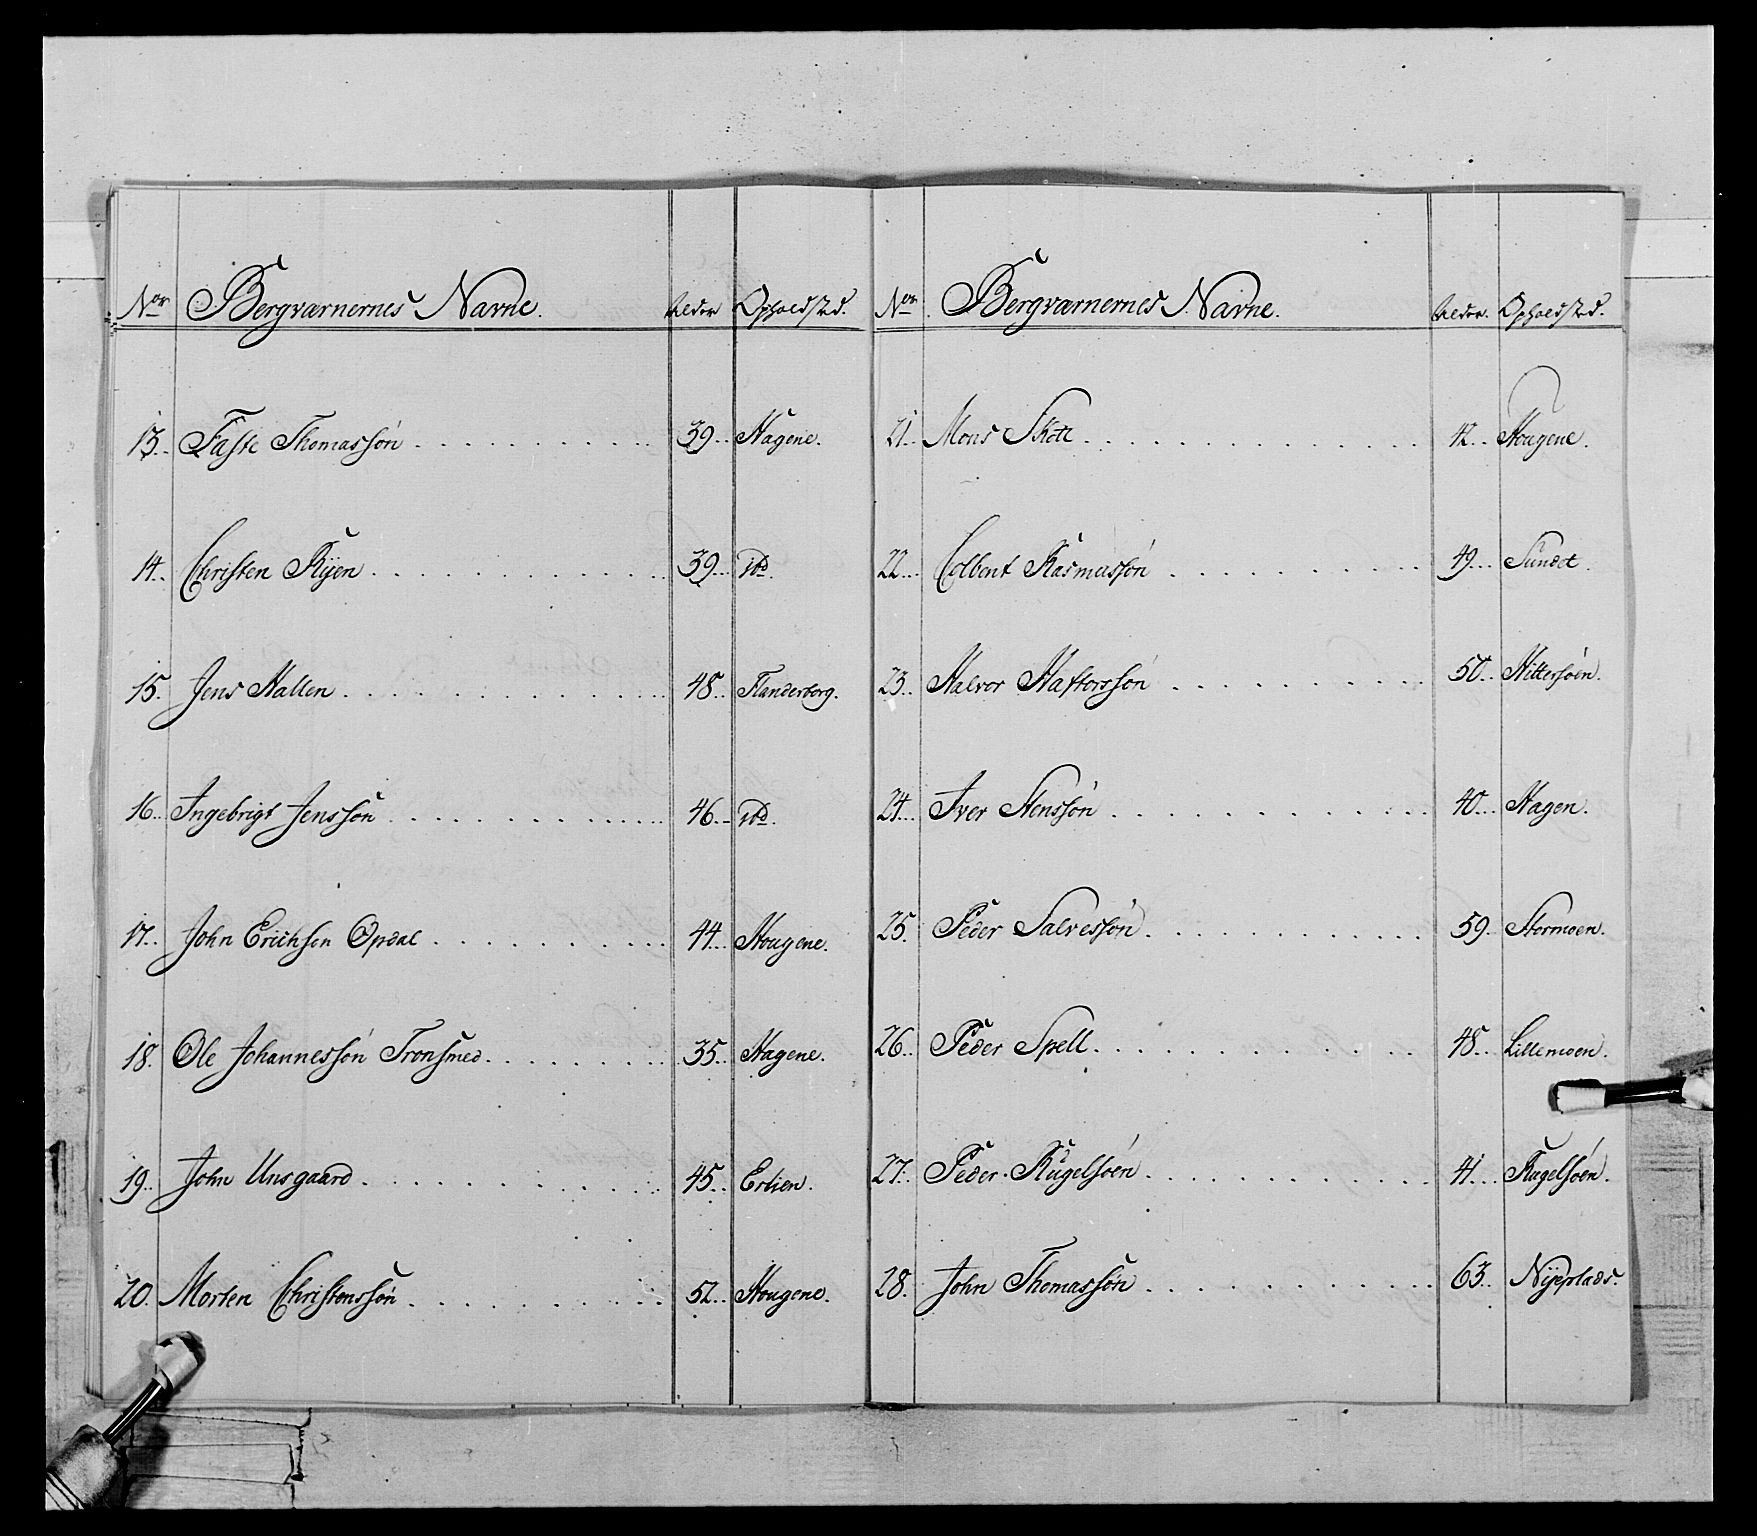 Nor Bergværnernes Navne. Alder Opholdsted.
13. Faste Thomassøn 39. Hagene.
14. Christen Ryen 39. ibd.
15. Jens Hallen 48. Flanderborg.
16. Ingebrigt Jenssøn 46. ibd.
17. John Erichsen Opdal 44. Hougene.
18. Ole Johannessøn Tronsmed 35. Hagene.
19. John Unsgaard 45. Erlien.
20. Morten Christenssøn 52. Hougene.
Nor Bergværnernes Navne. Alder. Opholdsted.
21. Mons Skott 42. Hougene.
22. Colbent Rasmussøn 49. Sundet.
23. Halvor Haftorssøn 50. Hittersøen.
24. Iver Stenssøn 40. Hagen.
25. Peder Salvessøn 59. Stormoen.
26. Peder Spell 48. Lillemoen.
27. Peder Kugelsøen 41. Kugelsøen.
28. John Thomassøn 63. Nyeplads.